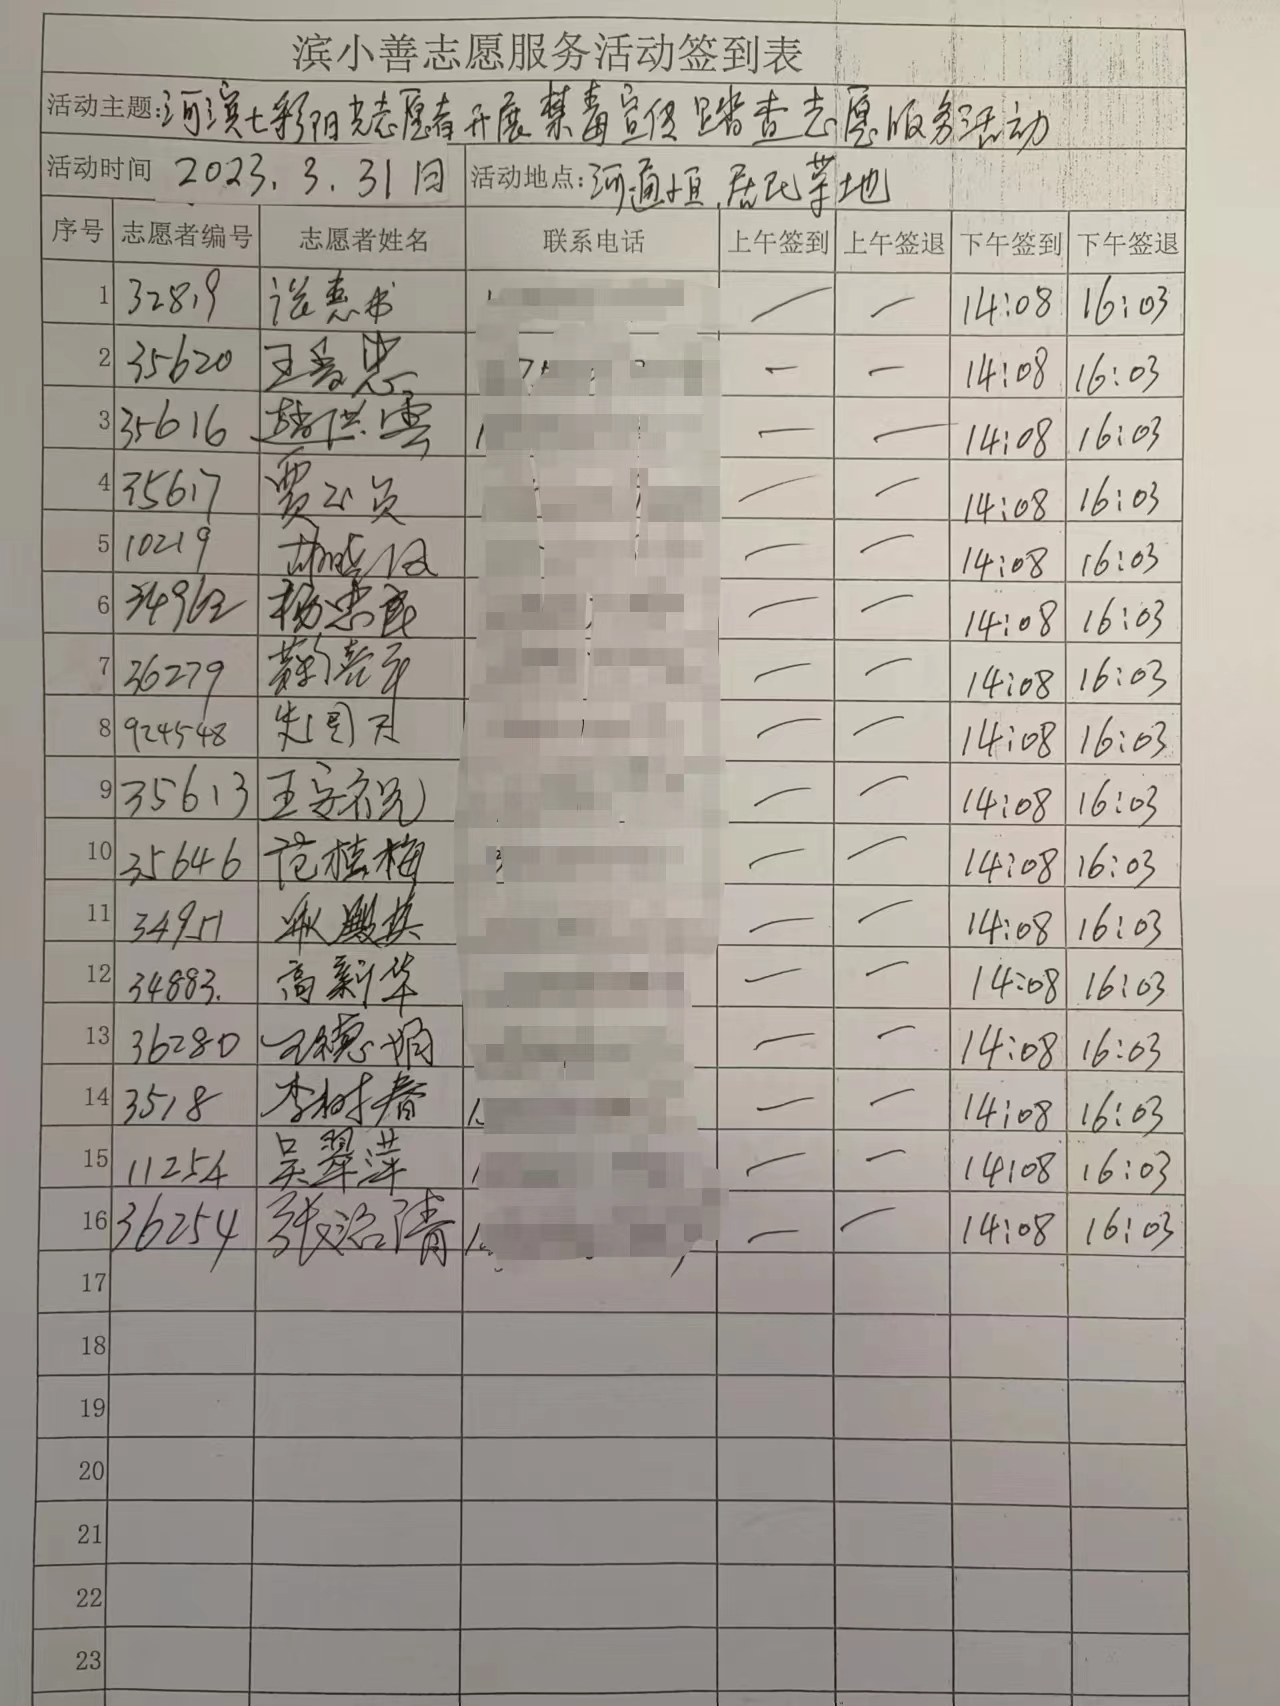 滨小善志愿服务活动签到表
活动主题:河滨七彩阳光志愿者开展禁毒宣传踏查志愿服务活动
活动时间 2023.3.31日 活动地点:河通恒.居民菜地
序号 志愿者编号 志愿者姓名 联系电话 上午签到 上午签退 下午签到 下午签退
1 32819 — — 14:08 16:03
2 35620 王 忠 — — 14:08 16:03
3 35616 赵洪雪 — — 14:08 16:03
4 35617 贾 — — 14:08 16:03
5 10219 胡晓 — — 14:08 16:03
6 34962 杨忠民 — — 14:08 16:03
7 36279 靳 平 — — 14:08 16:03
8 924548 — — 14:08 16:03
9 35613 王安祝 — — 14:08 16:03
10 35646 范桂梅 — — 14:08 16:03
11 34951 耿殿英 — — 14:08 16:03
12 34883. 高新华 — — 14:08 16:03
13 36280 王德 — — 14:08 16:03
14 3518 李树春 — — 14:08 16:03
15 11254 吴翠萍 — — 14:08 16:03
16 36254 张洛清 — — 14:08 16:03
17
18
19
20
21
22
23